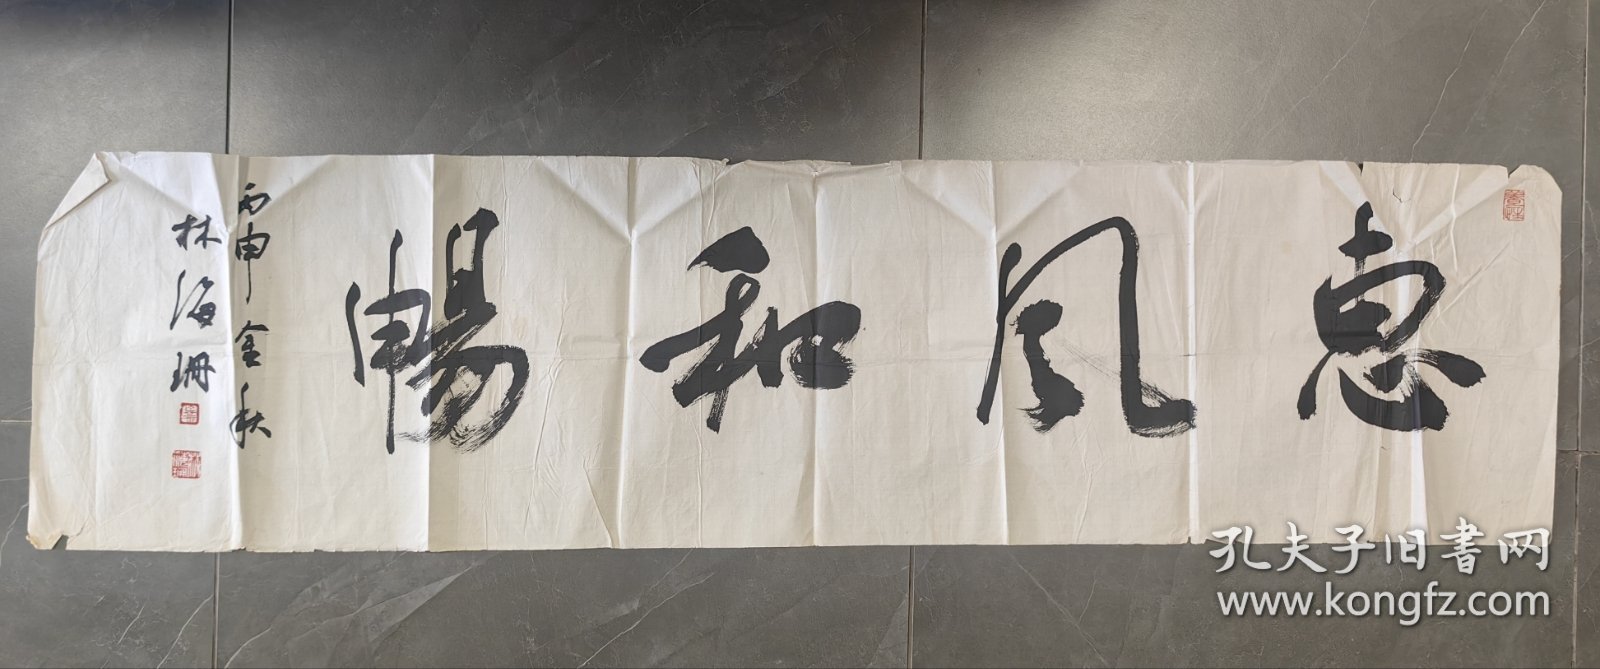 惠风和暢
丙申金秋
林海珊
孔夫子旧書网
www.kongfz.com